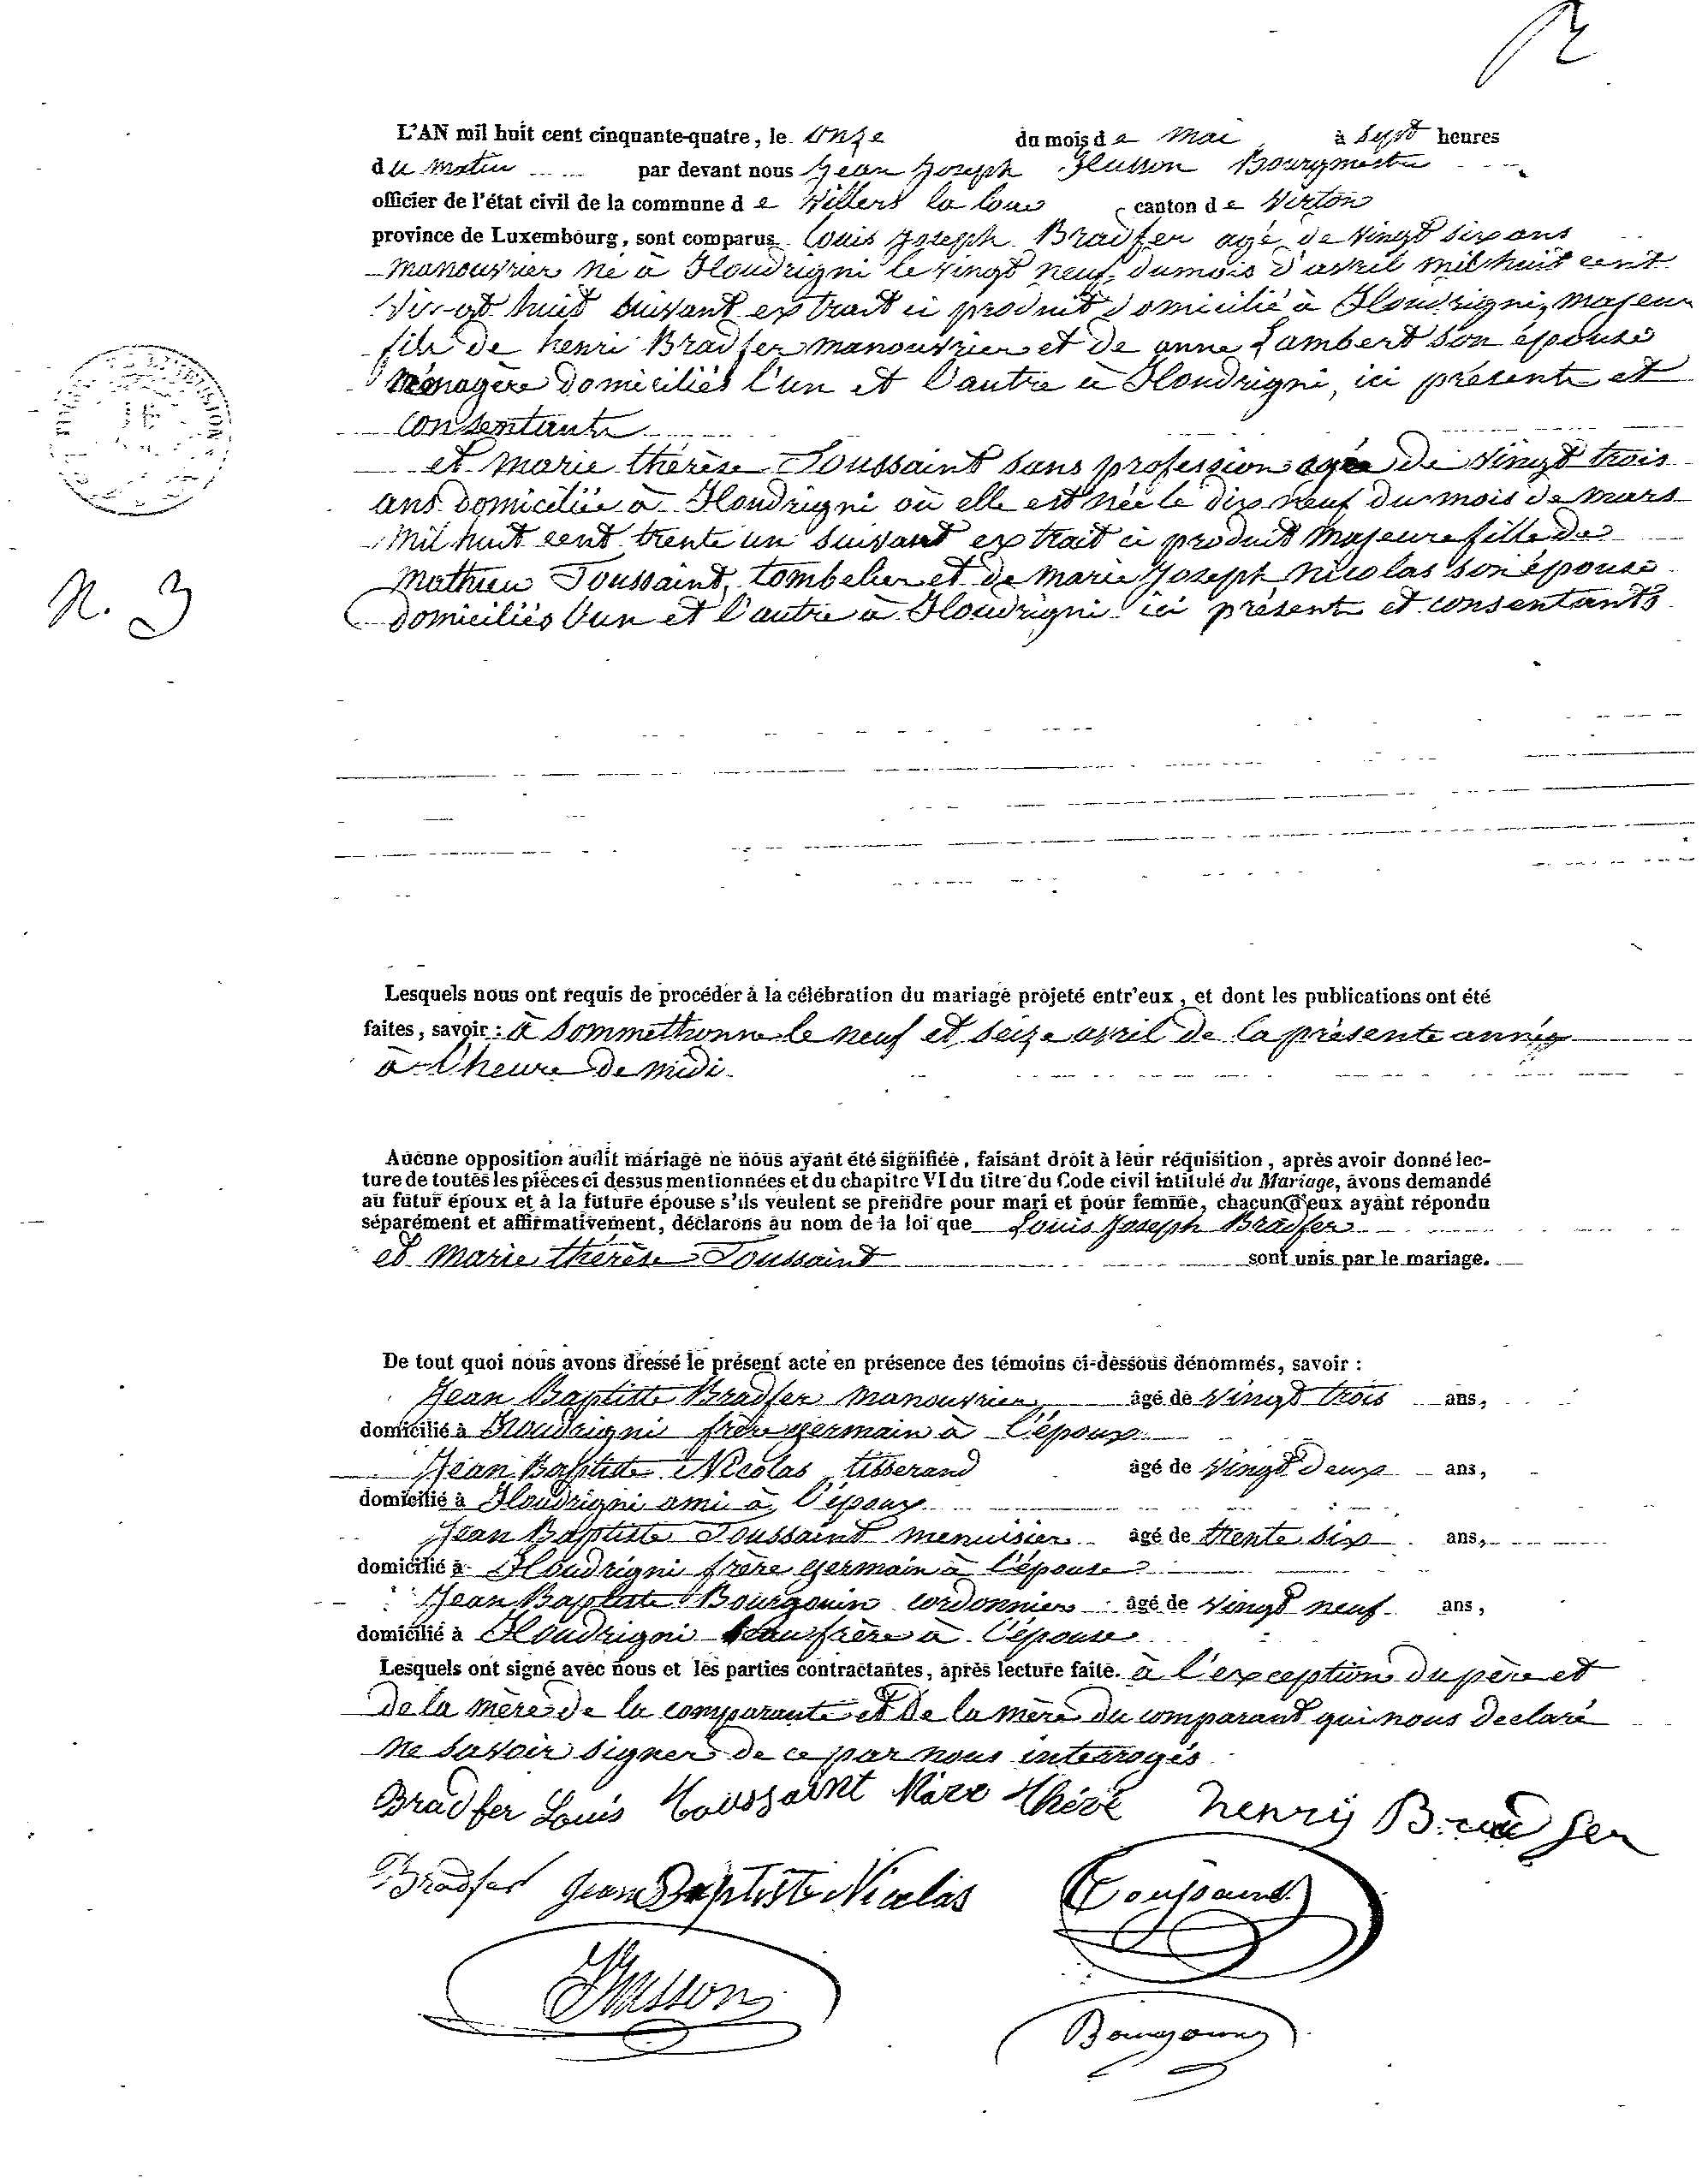 L'AN mil huit cent cinquante-quatre, le onze du mois de mai à sept heures
du matin par devant nous Jean Joseph Husson Bourgmestre
officier de l'état civil de la commune de Villers la loue canton de Virton
province de Luxembourg, sont comparus Louis Joseph Bradfer agé de vingt six ans
manouvrier né à Houdrigni le vingt neuf du mois d'avril mil huit cent
vingt huit suivant extrait ci produit domicilié à Houdrigni, majeur
fils de henri Bradfer manouvrier et de anne Lambert son épouse
ménagère domiciliés l'un et l'autre à Houdrigni, ici présents et
consentants
et marie thérèse Toussaint sans profession agée de vingt trois
ans domiciliée à Houdrigni où elle est née le dix neuf du mois de mars
mil huit cent trente un suivant extrait ci produit majeure fille de
N. 3
mathieu Toussaint, tombelier et de marie Joseph Nicolas son épouse
domiciliés l'un et l'autre à Houdrigni ici présents et consentants
Lesquels nous ont requis de procéder à la célébration du mariage projeté entr'eux, et dont les publications ont été
faites, savoir : à Sommethonne le neuf et seize avril de la présente année
à l'heure de midi
Aucune opposition audit mariage ne nous ayant été signifiée, faisant droit à leur réquisition, après avoir donné lec-
ture de toutes les pièces ci dessus mentionnées et du chapitre VI du titre du Code civil intitulé du Mariage, avons demandé
au futur époux et à la future épouse s'ils veulent se prendre pour mari et pour femme, chacun d'eux ayant répondu
séparément et affirmativement, déclarons au nom de la loi que Louis Joseph Bradfer
et marie thérèse Toussaint sont unis par le mariage.
De tout quoi nous avons dressé le présent acte en présence des témoins ci-dessous dénommés, savoir :
Jean Baptiste Bradfer manouvrier âgé de vingt trois ans,
domicilié à Houdrigni frère germain à l'époux
Jean Baptiste Nicolas tisserand âgé de vingt deux ans,
domicilié à Houdrigni ami à l'époux
Jean Baptiste Toussaint menuisier âgé de trente six ans,
domicilié à Houdrigni frère germain à l'épouse
Jean Baptiste Bourgouin cordonnier âgé de vingt neuf ans,
domicilié à Houdrigni beau frère à l'épouse
Lesquels ont signé avec nous et les parties contractantes, après lecture faite. à l'exception du père et
de la mère de la comparante et de la mère du comparant qui nous declaré
ne savoir signer de ce par nous interrogés
Bradfer Louis Toussaint Mare Thérè henry Bradfer
Bradfer Jean Baptiste Nicolas Toussaint
Husson
Bourgouin